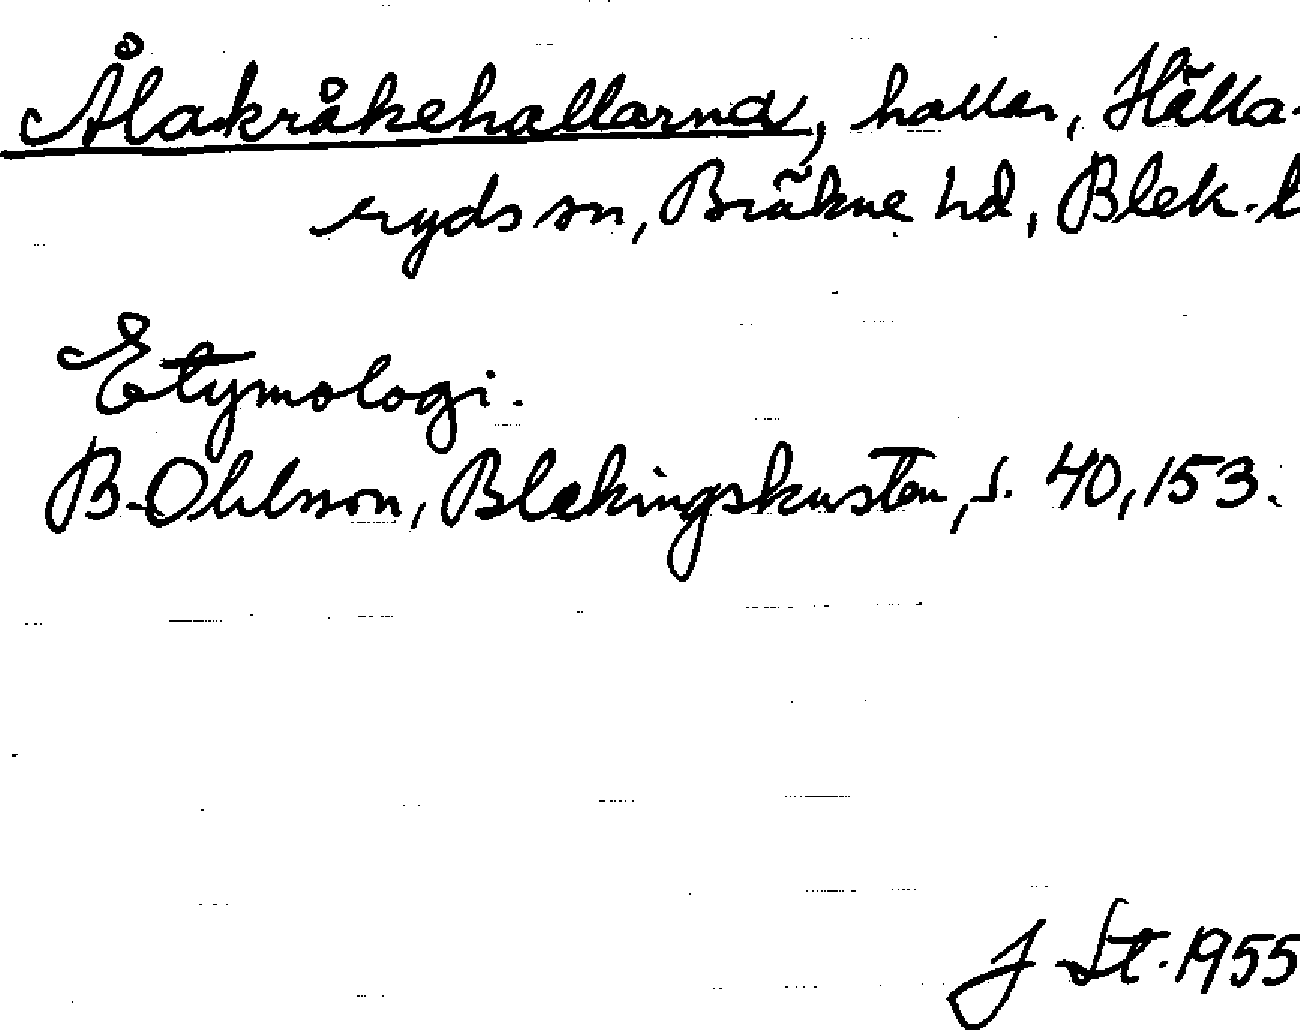 Ålakråkehallarna, hallar, Hälla-
ryds sn, Bräkne hd, Blek. l
Etymologi.
B. Ohlsson, Blekingskusten, s. 40, 153.
J St. 1955